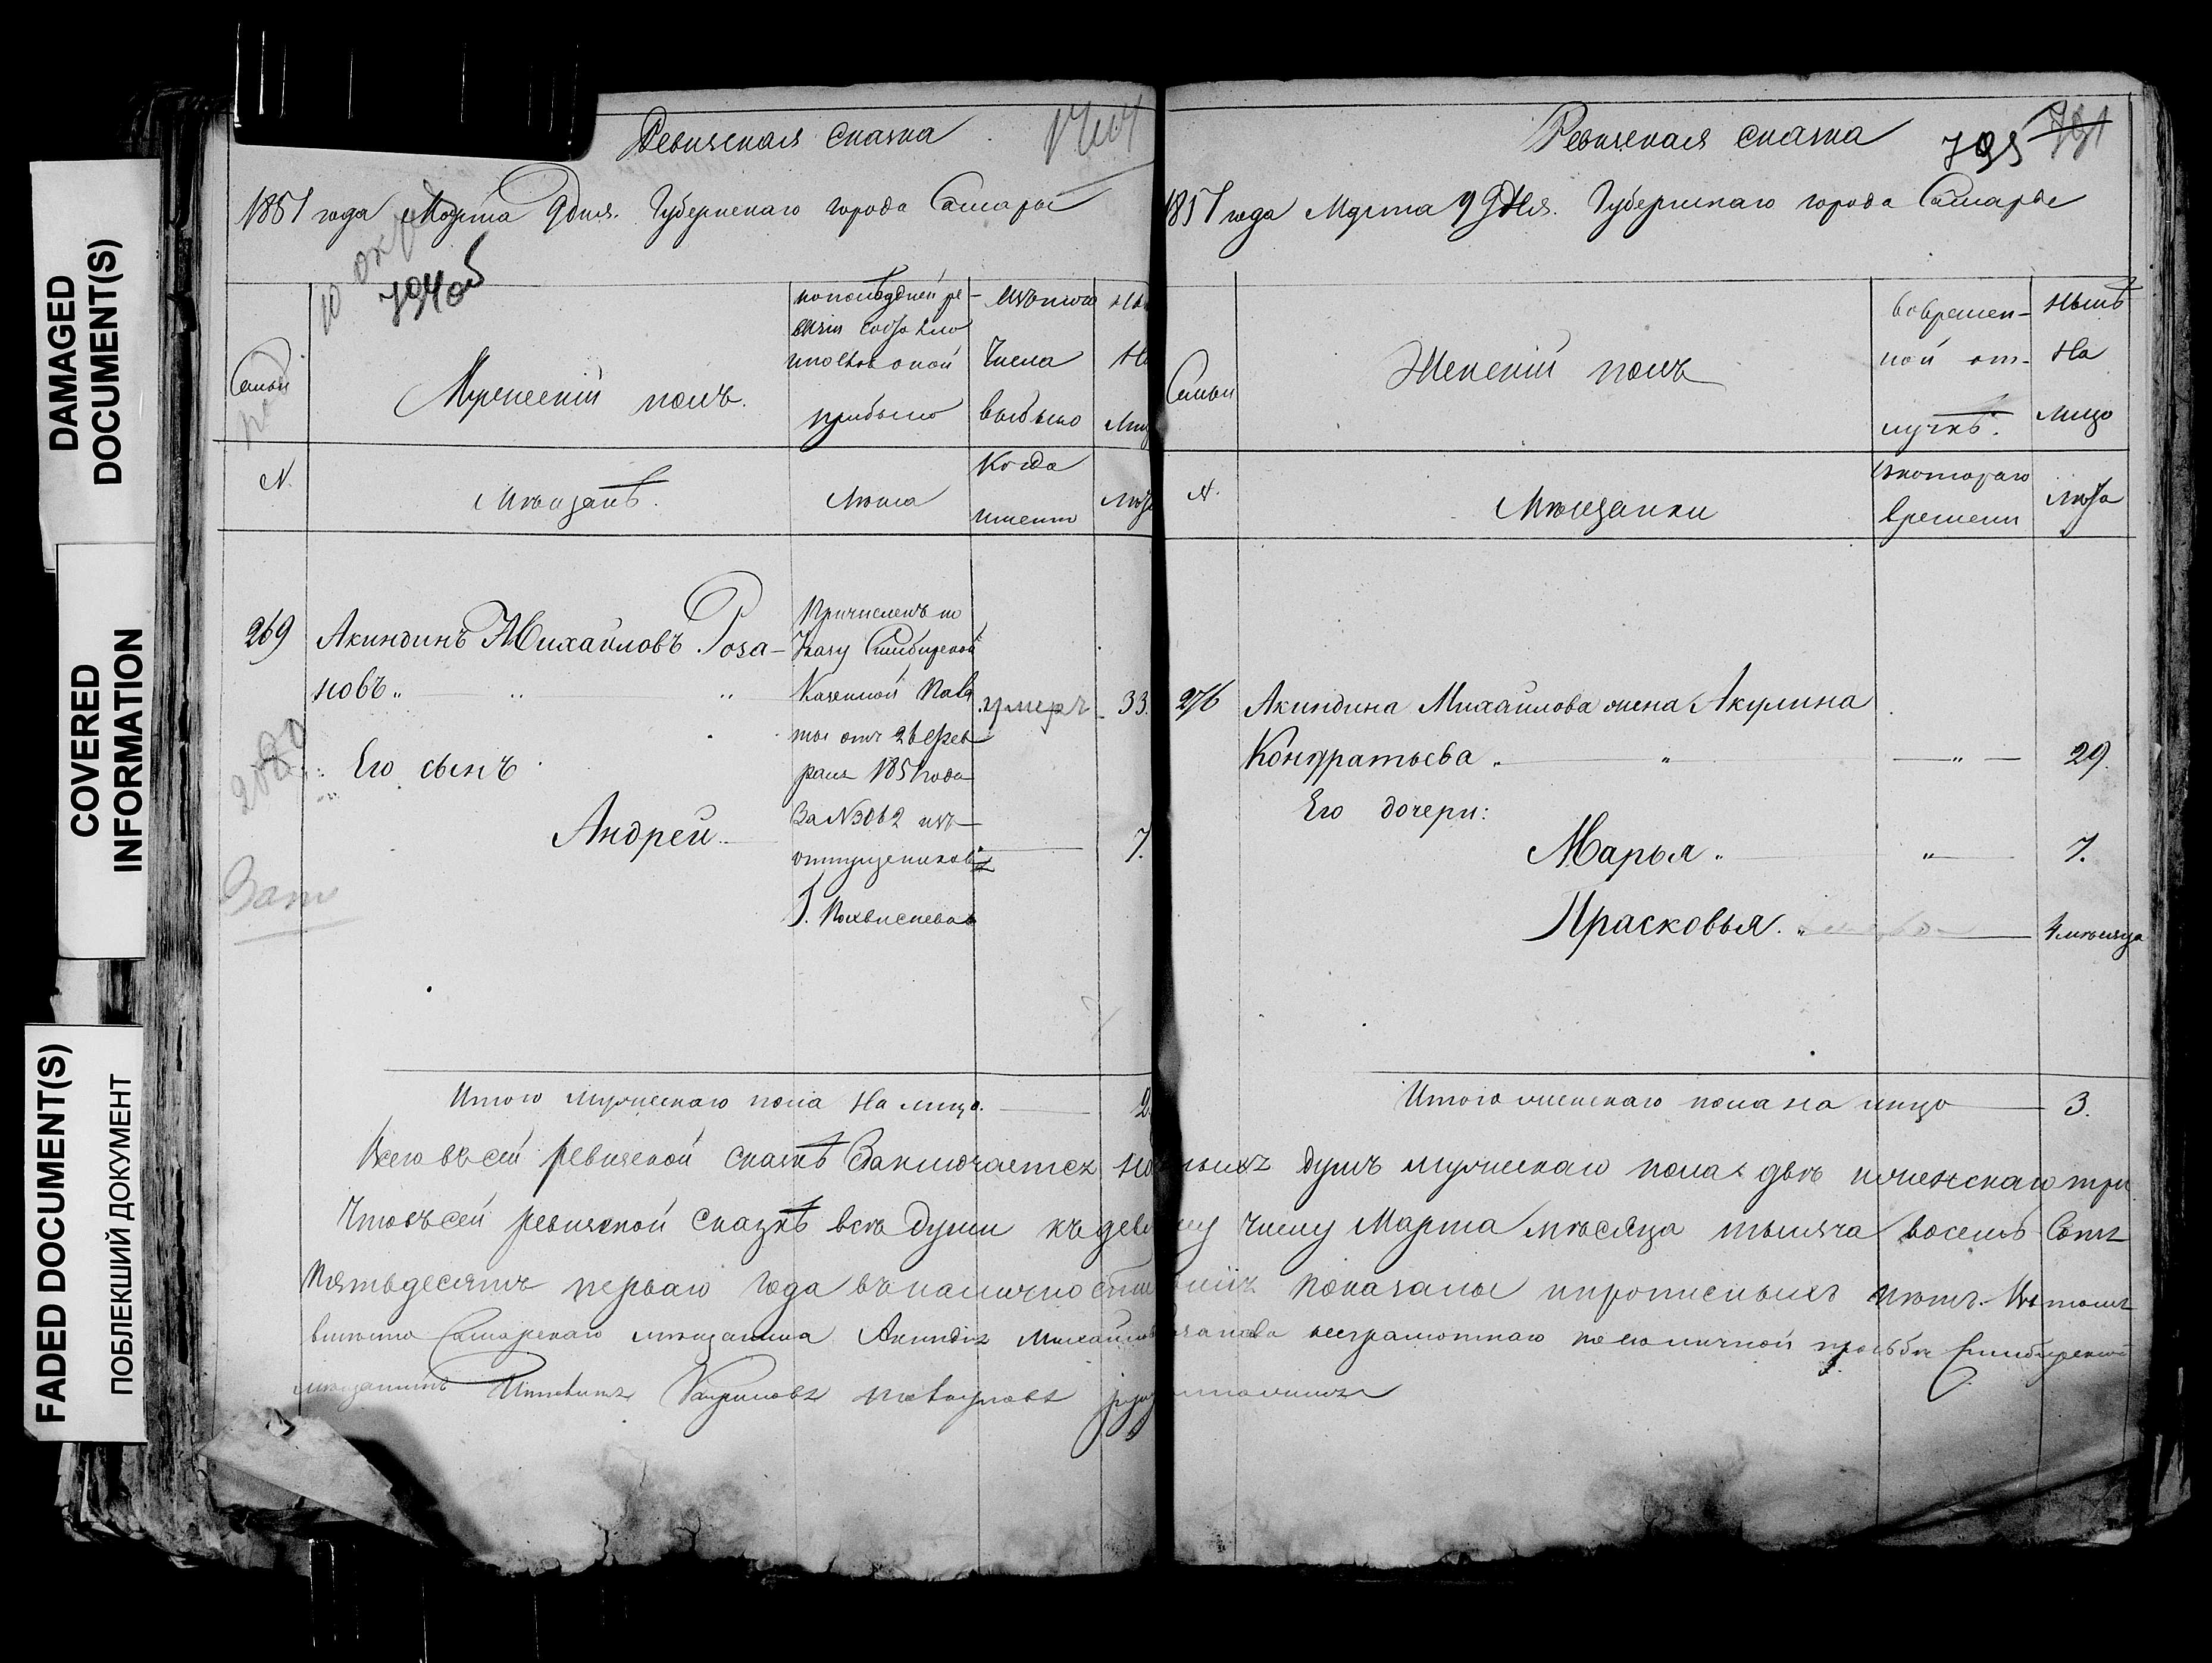 DAMAGED
DOCUMENT(S)
COVERED
INFORMATION
FADED DOCUMENT(S)
ПОБЛЕКШИЙ ДОКУМЕНТ
Ревизская сказка
1851 года Марта 9 дня. Губернскаго города Самары
10 окр
794об
Семьи
Мужескій полъ.
по последней ре-
визіи состояло
и после оной
прибыло
Изъ того
Числа
выбыло
N.
Мѣщанѣ.
Лѣта
Когда
именно
269 Акиндинъ Михайловъ Роза-
новъ „ „ „
умеръ 33.
Его сынъ
Андрей. 7.
Причисленъ по
Указу Симбирской
Казенной Пала
ты отъ 26 Фев
раля 1851 года
За N 3062 изъ
отпущениковъ
Г. Похвисневав
2080
Зат
Итого мужескаго пола На лицо. 2.
Ревизская сказка
795 791
1851 года Марта 9 дня. Губернскаго города Самары
Семьи
Женскій полъ
вовремен-
ной от-
лучкѣ.
Нынѣ
На
лицо
N.
Мѣщанки
Съкотораго
времени
лѣта
276 Акиндина Михайлова жена Акулина
Кондратьева „ „ „ 29.
Его дочери:
Марья „ „ 7.
Прасковья. „ 4 мѣсяца
Итого женскаго пола на лицо 3.
Всего въ сей ревизской сказкѣ Заключается на личныхъ душъ мужескаго пола двѣ и женскаго три
Что въ сей ревизской сказкѣ всѣ души къ девятому числу Марта мѣсяца тысяча восемь Сотъ
Пятьдесятъ перваго года въ наличности показаны и прописныхъ нѣтъ. Въ томъ
вместо Самарскаго мещанина Акиндина Михайлова Розанова неграмотнаго по его личной просьбе Симбирской
мещанинъ